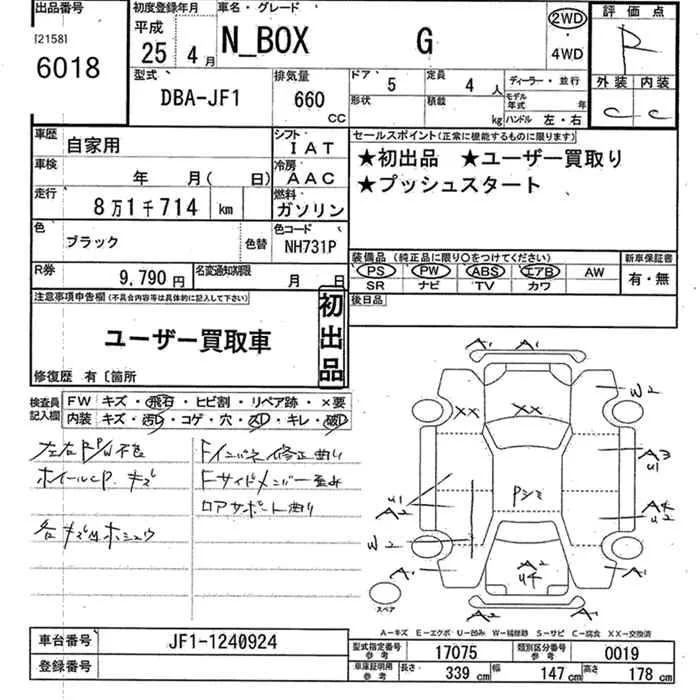 出品番号 初度登録年月 車名・グレード 評価点
[2158] 平成 2WD R
6018 25年 4月 N_BOX G 4WD
型式 排気量 ドア 5 定員 4人 ディーラー・並行 外装 内装
DBA-JF1 660 CC 形状 積載 kg モデル年式 年 ハンドル 左・右 C C
車歴 自家用 シフト IAT セールスポイント(正常に機能するものに限ります)
車検 年 月( 日) 冷房 AAC ★初出品 ★ユーザー買取り
走行 8万1千714 km 燃料 ガソリン ★プッシュスタート
色 ブラック 色替 色コード NH731P
装備品 (純正品に限り○をつけてください) 新車保証書
R券 9,790円 名変通知期限 月 日 PS PW ABS エアB AW 有・無
SR ナビ TV カワ
注意事項申告欄(不具合内容等は具体的に記入して下さい) 初出品 後日品
ユーザー買取車
修復歴 有〔箇所
検査員記入欄 FW キズ・飛石・ヒビ割・リペア跡・×要
内装 キズ・汚れ・コゲ・穴・スレ・キレ・破れ
左右F/W不良 Fインパネ修正曲り
ホイールCP.キズ Fサイドメンバー歪み
ロアサポート曲り
各キズUホシュウ
A1 A1
XX XX W2
A3
U1
Pシミ
U1 A2
A4
U2
W2
A1 A2 A1
Uチ
スペア
A1 A1
A−キズ E−エクボ U−凹み W−補修跡 S−サビ C−腐食 XX−交換済
車台番号 JF1-1240924 型式指定番号 参考 17075 類別区分番号 参考 0019
登録番号 車庫証明用 参考 長さ 339 cm 幅 147 cm 高さ 178 cm